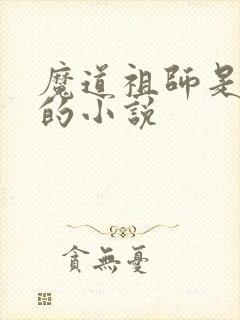 魔道祖師是
的小說
貪無憂